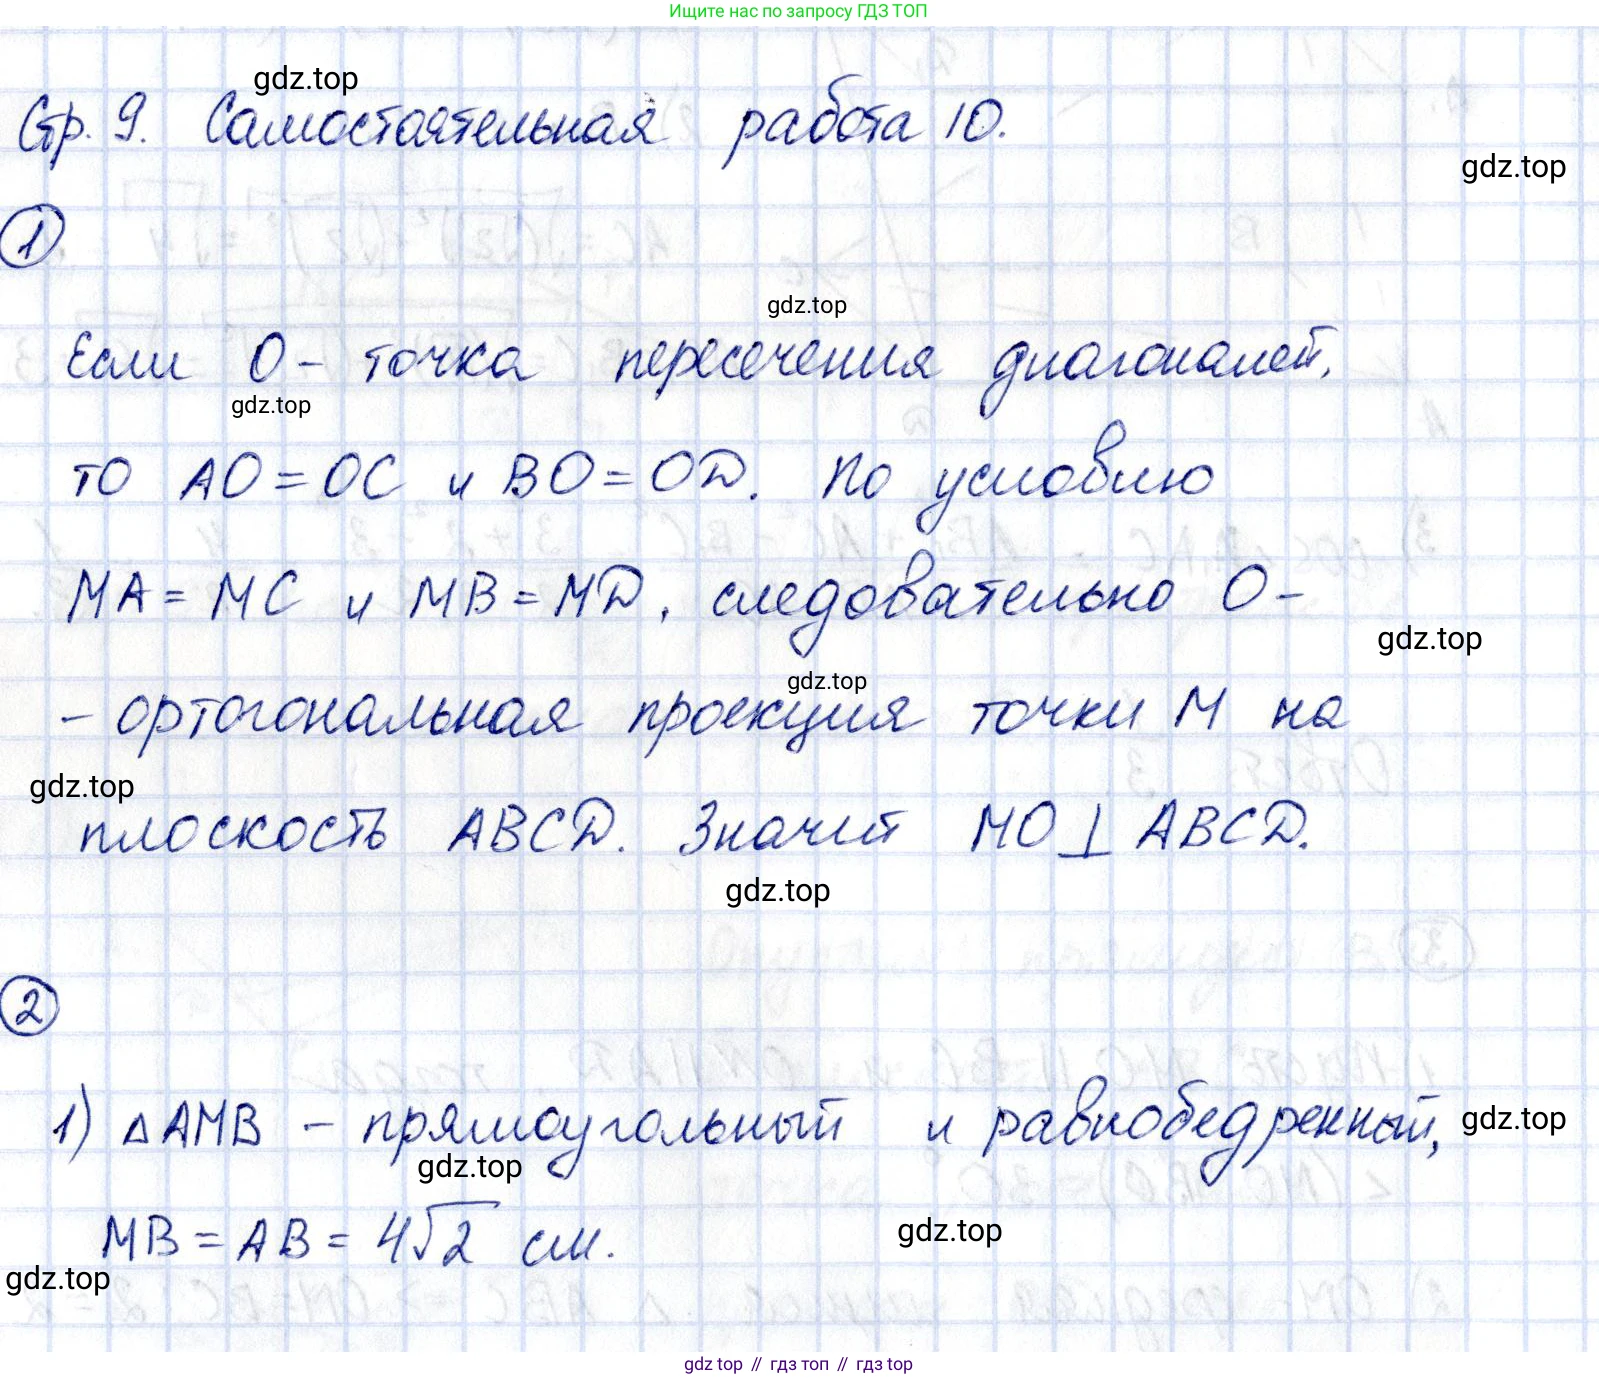 Ищите нас по запросу ГДЗ ТОП
gdz.top
Стр. 9. Самостоятельная работа 10.
gdz.top
1
gdz.top
Если О - точка пересечения диагоналей,
gdz.top
то AO = OC и BO = OD. По условлю
MA = MC и MB = MD, следовательно О -
gdz.top
gdz.top
- ортогональная проекция точки M на
gdz.top
плоскость ABCD. Значит MO ⊥ ABCD.
gdz.top
2
1) △AMB - прямоугольный и равнобедренный,
gdz.top
gdz.top
MB = AB = 4√2 см.
gdz.top
gdz.top
gdz top // гдз топ // гдз top